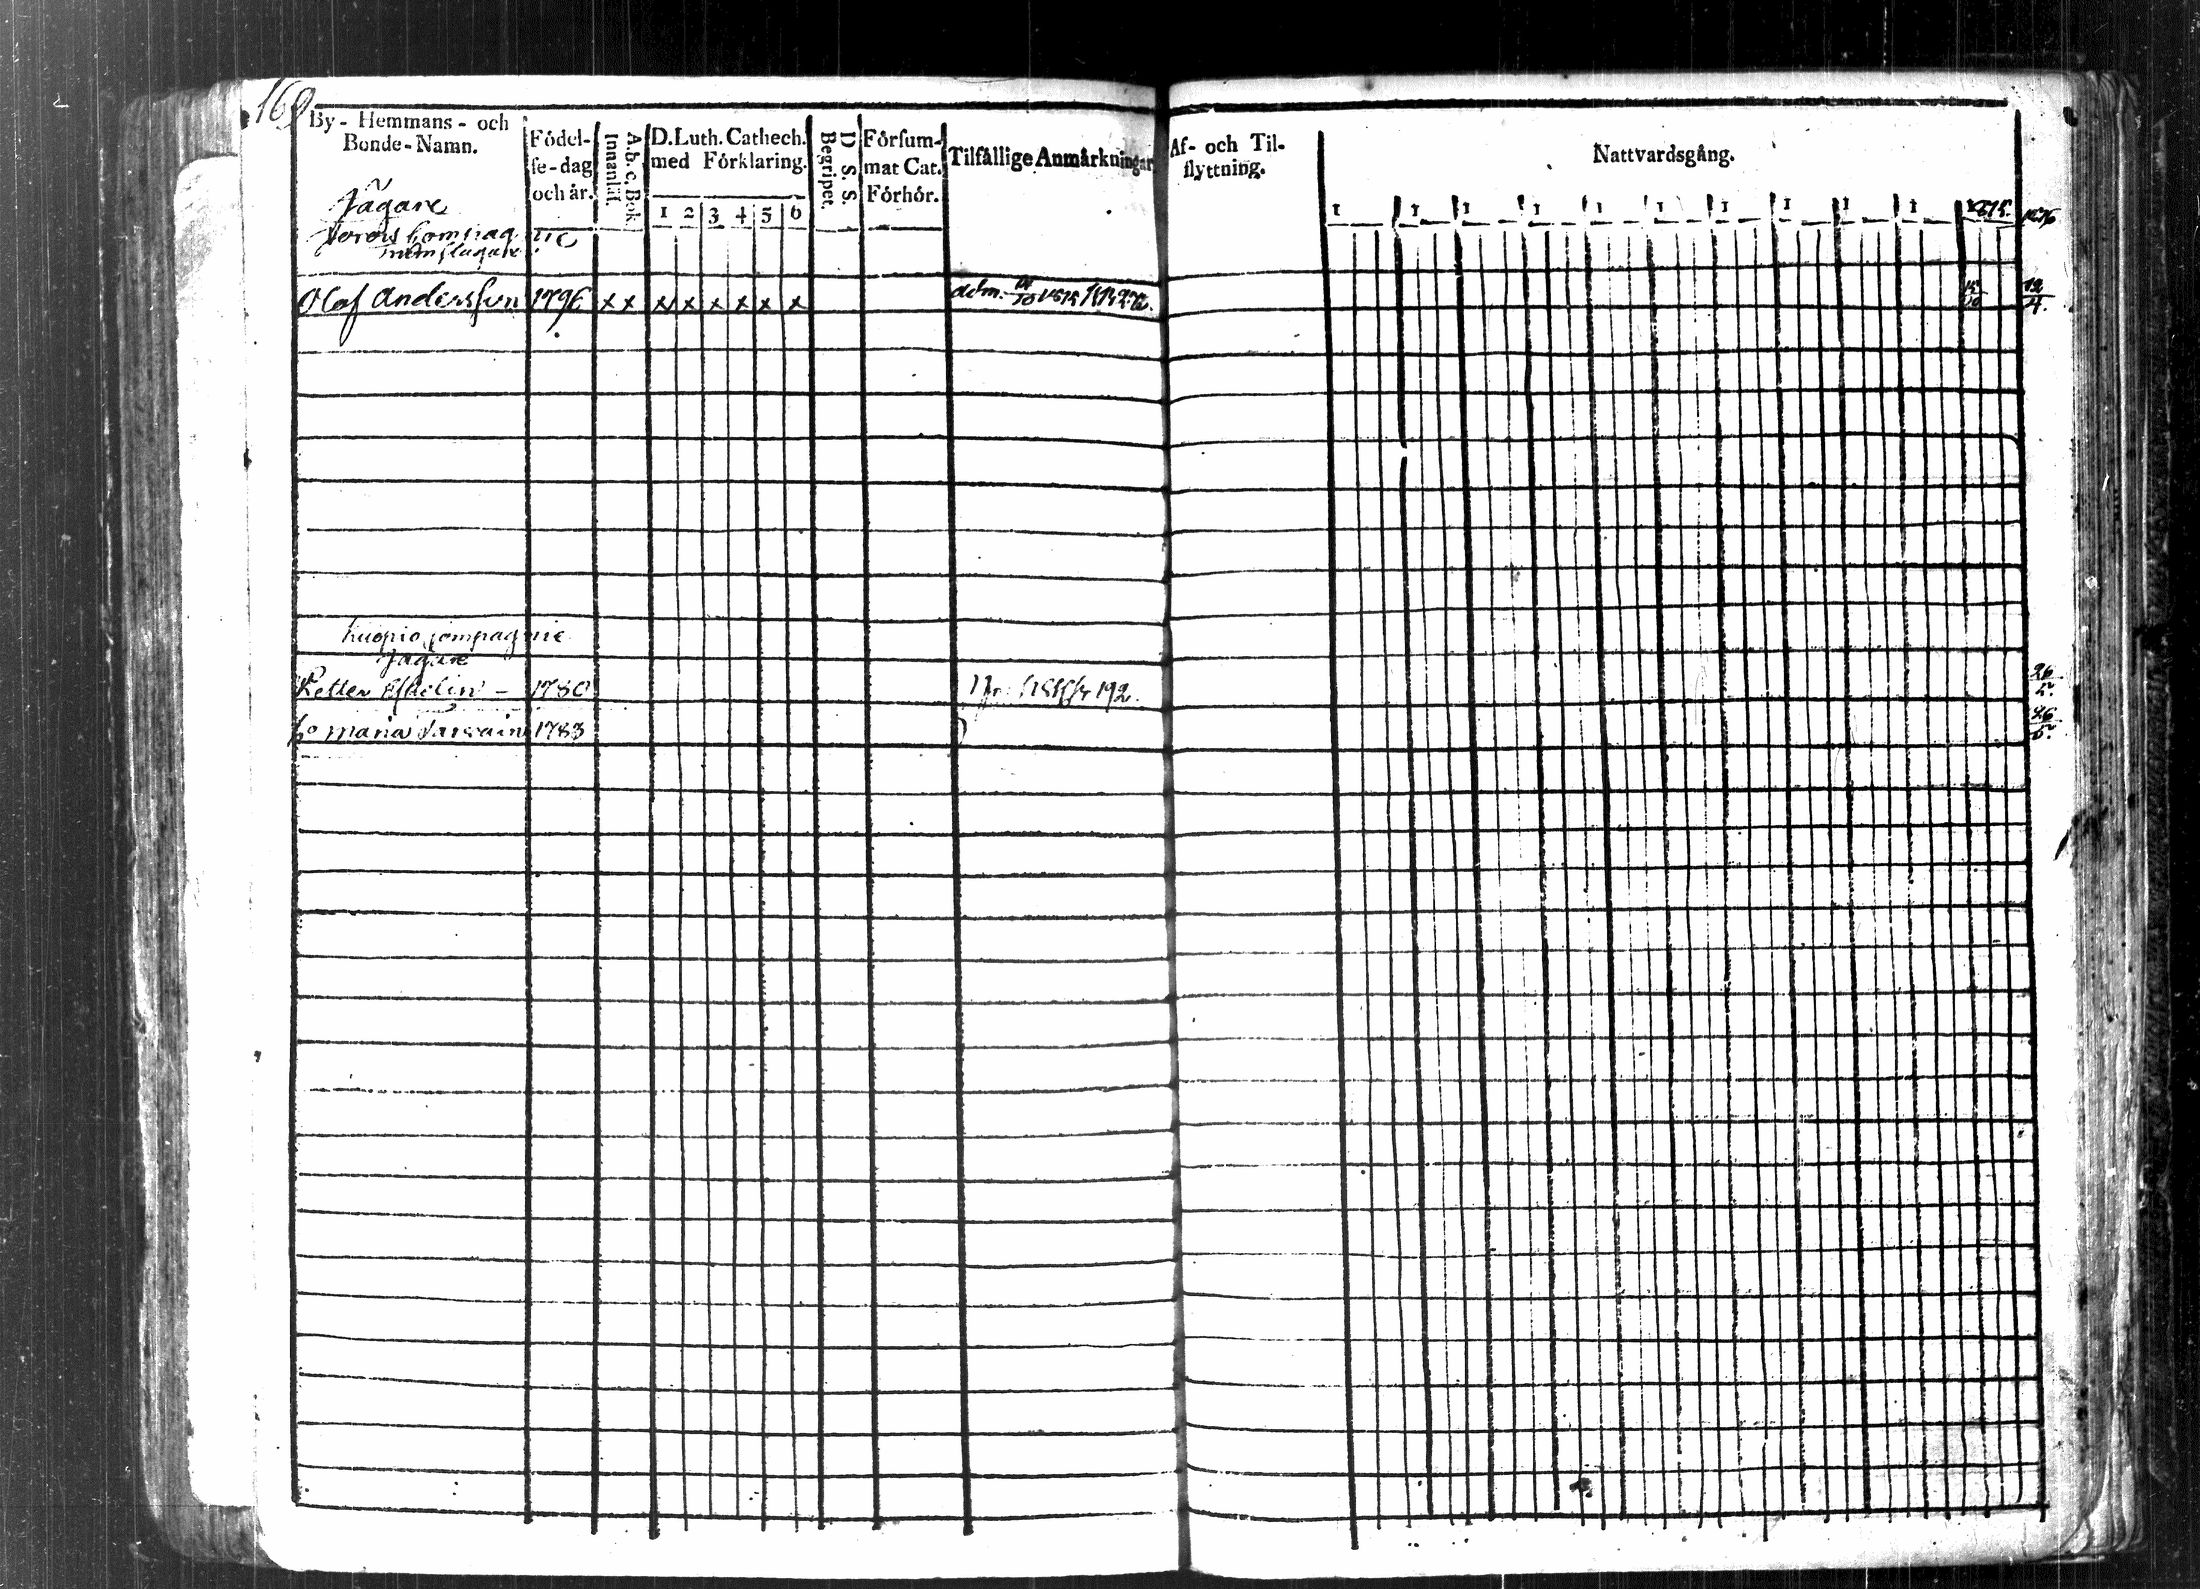 160
By- Hemmans- och
Bonde-Namn.
Födel-
se-dag
och år.
A.b.c. Bok
Innanläs.
D.Luth. Cathech.
med Förklaring.
1 2 3 4 5 6
D. S. S.
Begripet.
Försum-
mat Cat.
Förhör.
Tilfällige Anmärkningar
Af- och Til-
flyttning.
Nattvardsgång.
1 1 1 1 1 1 1 1 1 1 1815. 1816
Jägare
Compagnie
Olof Andersson 1796 x x x x x x x x adm. 10 1815 15/10 12/4.
Kuopio Compagnie
Jägare
Petter 1780 192. 26/5.
Ho Maria 1783 26/5.